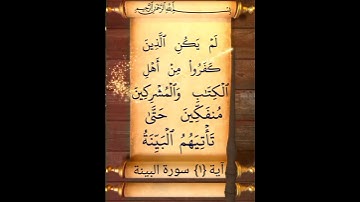 بسم الله الرحمن الرحيم
لَمْ يَكُنِ ٱلَّذِينَ
كَفَرُوا۟ مِنْ أَهْلِ
ٱلْكِتَٰبِ وَٱلْمُشْرِكِينَ
مُنفَكِّينَ حَتَّىٰ
تَأْتِيَهُمُ ٱلْبَيِّنَةُ
آية {١} سورة البينة